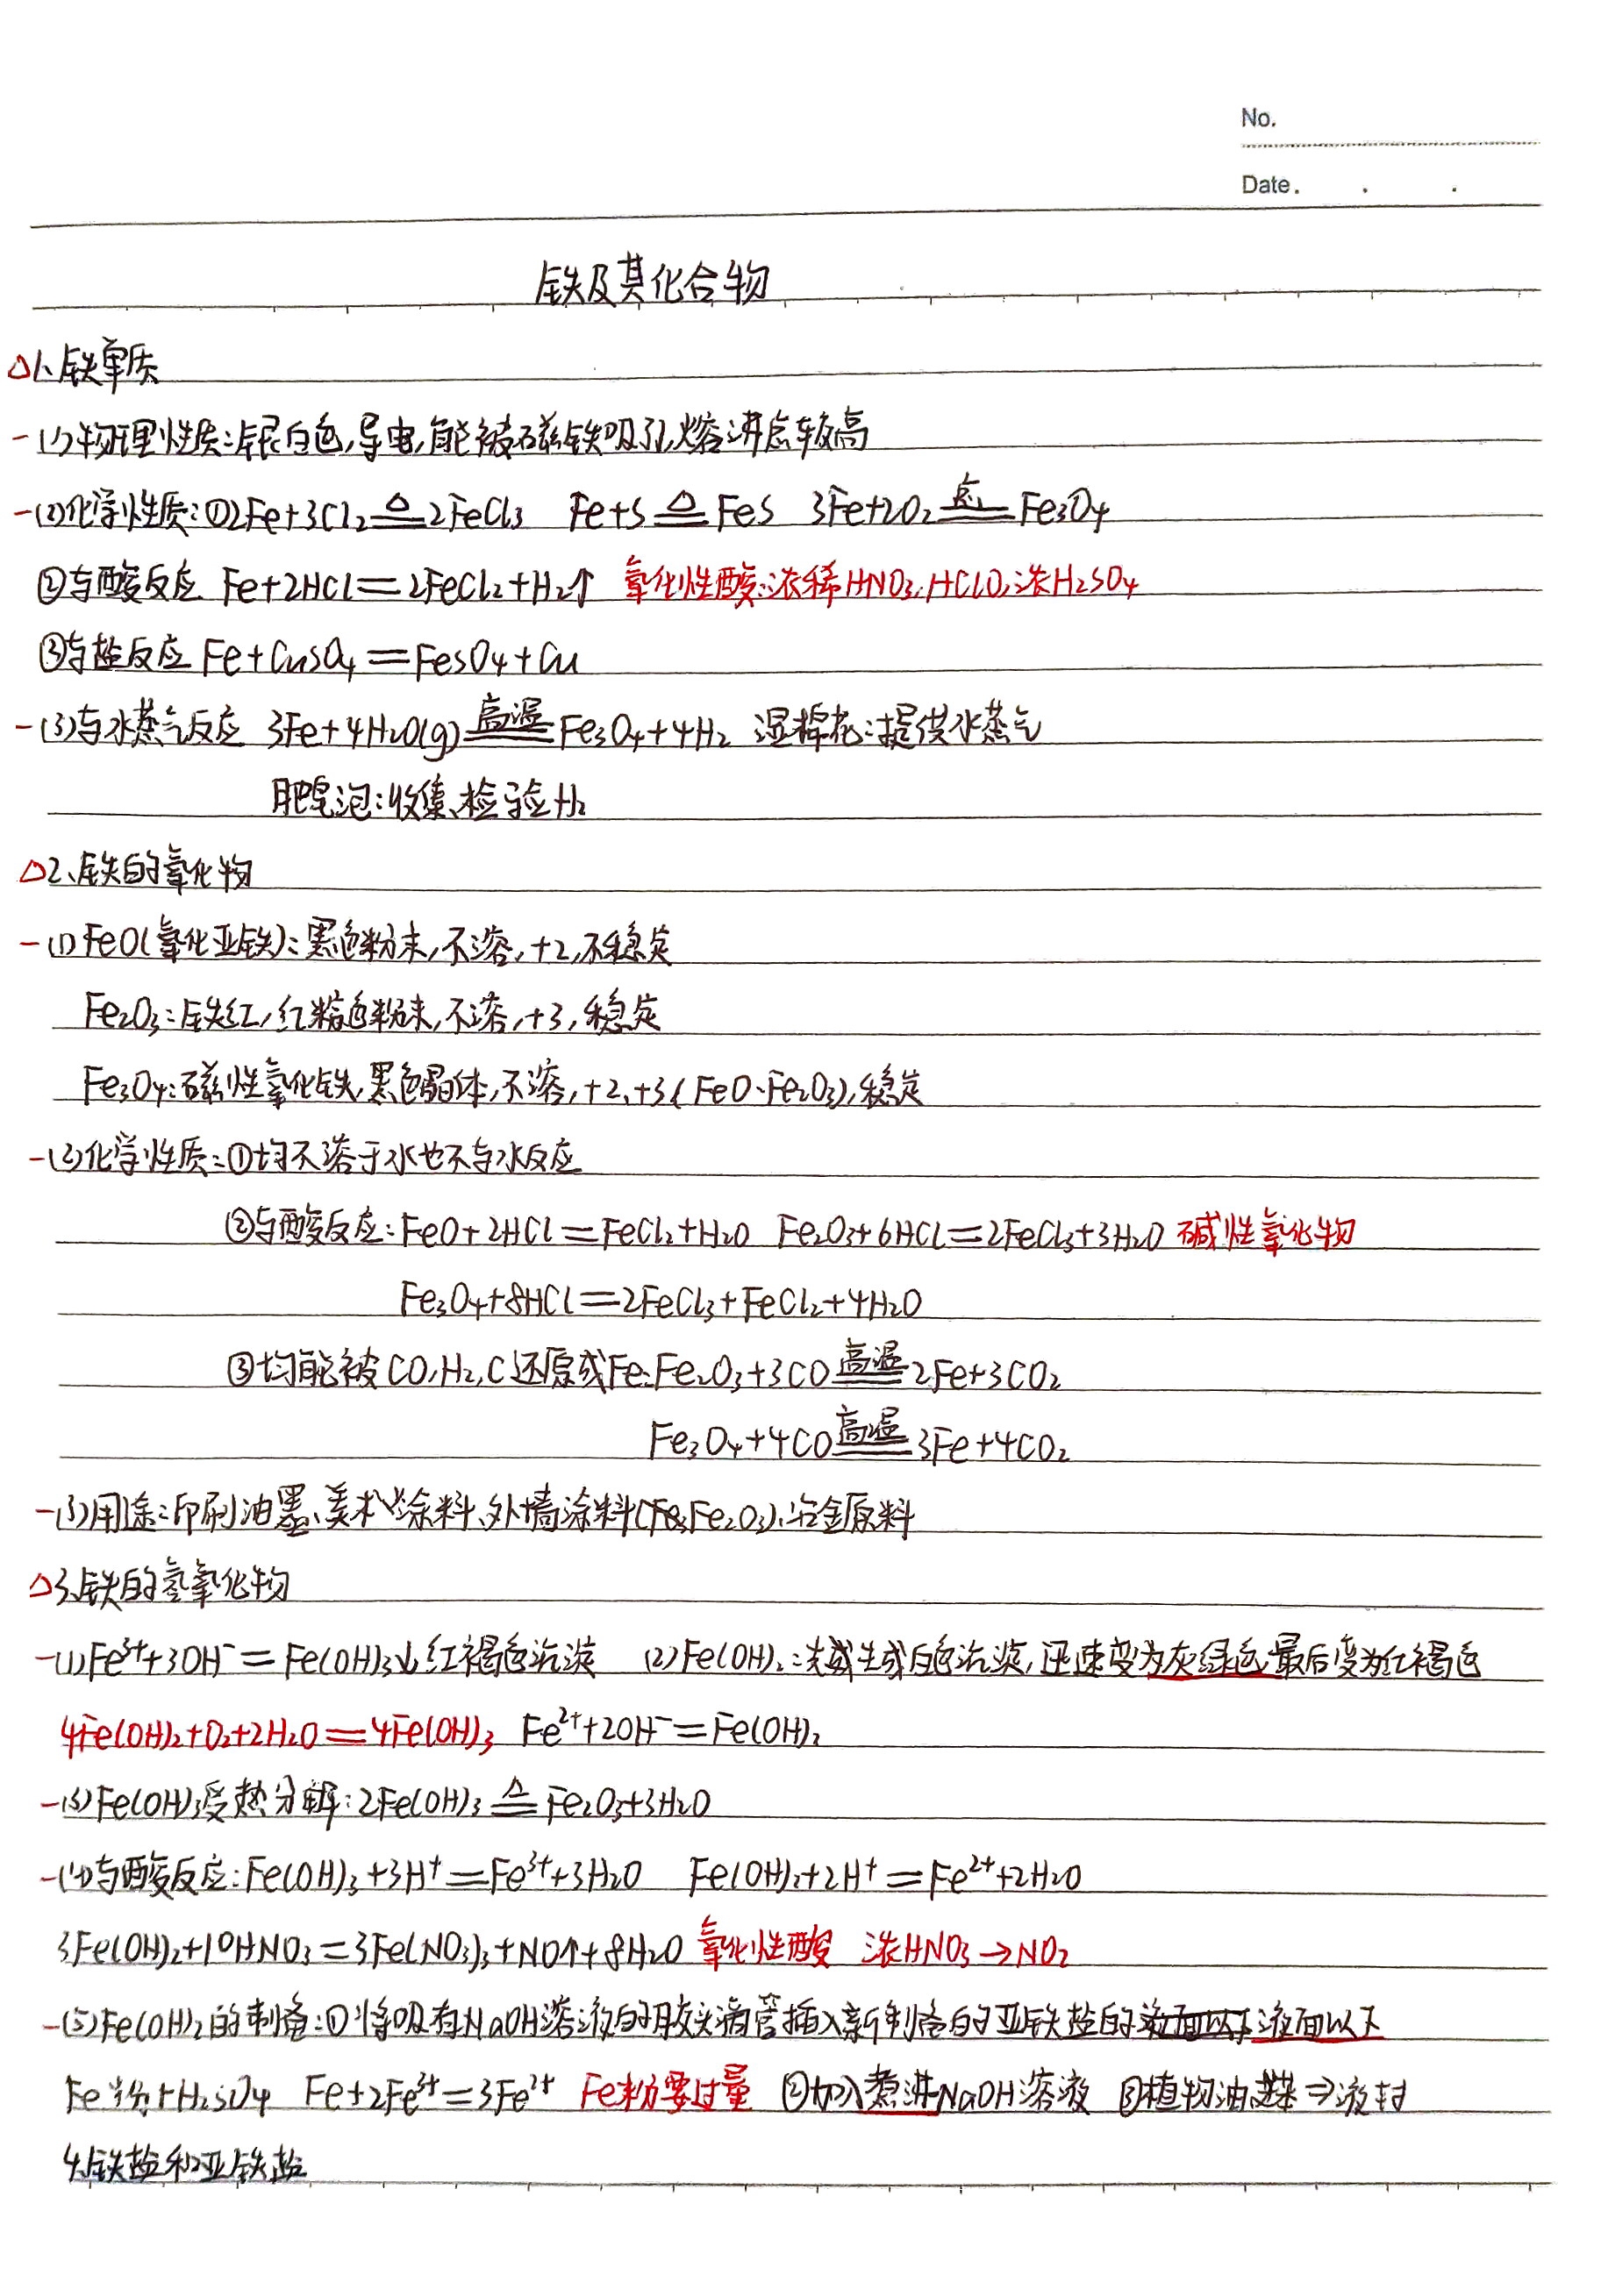 No.
Date.
铁及其化合物
△1、铁单质
-(1)物理性质:银白色,导电,能被磁铁吸引,熔沸点较高
-(2)化学性质:①2Fe+3Cl₂≜2FeCl₃ Fe+S≜FeS 3Fe+2O₂ 点燃═ Fe₃O₄
②与酸反应 Fe+2HCl=2FeCl₂+H₂↑ 氧化性酸:浓稀HNO₃.HClO.浓H₂SO₄
③与盐反应 Fe+CuSO₄=FeSO₄+Cu
-(3)与水蒸气反应 3Fe+4H₂O(g) 高温═ Fe₃O₄+4H₂ 湿棉花:提供水蒸气
肥皂泡:收集、检验H₂
△2、铁的氧化物
-(1)FeO(氧化亚铁):黑色粉末,不溶,+2,不稳定
Fe₂O₃:铁红,红棕色粉末,不溶,+3,稳定
Fe₃O₄:磁性氧化铁,黑色晶体,不溶,+2,+3(FeO·Fe₂O₃),稳定
-(2)化学性质:①均不溶于水也不与水反应
②与酸反应:FeO+2HCl=FeCl₂+H₂O Fe₂O₃+6HCl=2FeCl₃+3H₂O 碱性氧化物
Fe₃O₄+8HCl=2FeCl₃+FeCl₂+4H₂O
③均能被CO,H₂,C还原成Fe:Fe₂O₃+3CO 高温═ 2Fe+3CO₂
Fe₃O₄+4CO 高温═ 3Fe+4CO₂
-(3)用途:印刷油墨、美术涂料、外墙涂料(Fe₂O₃)、冶金原料
△3、铁的氢氧化物
-(1)Fe³⁺+3OH⁻=Fe(OH)₃↓红褐色沉淀 (2)Fe(OH)₂:先生成白色沉淀,迅速变为灰绿色,最后变为红褐色
4Fe(OH)₂+O₂+2H₂O=4Fe(OH)₃ Fe²⁺+2OH⁻=Fe(OH)₂
-(3)Fe(OH)₃受热分解:2Fe(OH)₃≜Fe₂O₃+3H₂O
-(4)与酸反应:Fe(OH)₃+3H⁺=Fe³⁺+3H₂O Fe(OH)₂+2H⁺=Fe²⁺+2H₂O
3Fe(OH)₂+10HNO₃=3Fe(NO₃)₃+NO↑+8H₂O 氧化性酸 浓HNO₃→NO₂
-(5)Fe(OH)₂的制备:①将吸有NaOH溶液的胶头滴管插入新制备的亚铁盐的液面以下
Fe粉+H₂SO₄ Fe+2Fe³⁺=3Fe²⁺ Fe粉要过量 ②加入煮沸NaOH溶液 ③植物油或苯⇒液封
4.铁盐和亚铁盐